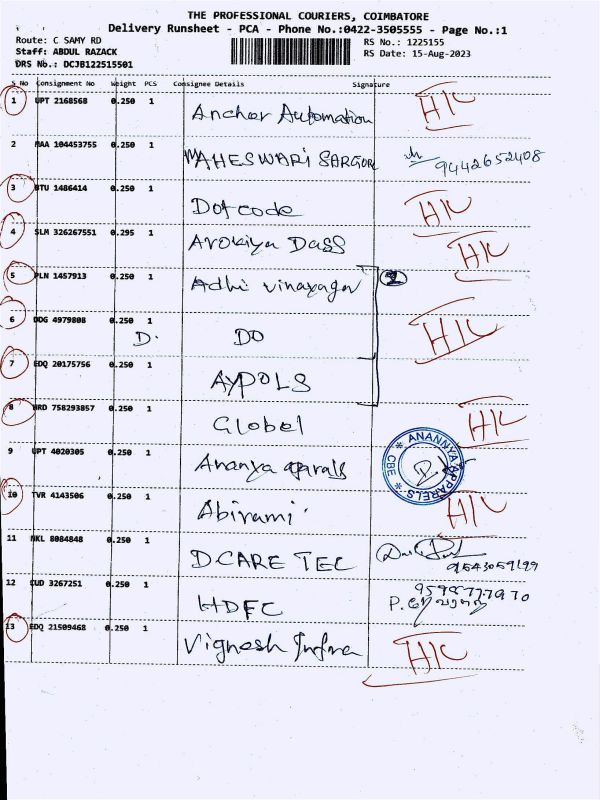 THE PROFESSIONAL COURIERS, COIMBATORE
Delivery Runsheet - PCA - Phone No.:0422-3505555 - Page No.:1
Route: C SAMY RD
RS No.: 1225155
Staff: ABDUL RAZACK
RS Date: 15-Aug-2023
DRS No.: DCJB122515501
S No Consignment No Weight PCS Consignee Details Signature
1 UPT 2168568 0.250 1 Anchor Automation H/C
2 MAA 104453755 0.250 1 MAHESWARI 9442652408
3 BTU 1486414 0.250 1 Dotcode H/C
4 SLM 326267551 0.295 1 Arokiya Dass H/C
5 PLN 1457913 0.250 1 Adhi vinayagar 2
6 DDG 4979808 0.250 1 D. DO H/C
7 EDQ 20175756 0.250 1 AYPOLS
8 HRD 758293857 0.250 1 Global H/C
9 UPT 4020305 0.250 1 Ananya ANANNYA APPARELS * CBE *
10 TVR 4143506 0.250 1 Abirami H/C
11 NKL 8084848 0.250 1 D.CARE TEC
12 CUD 3267251 0.250 1 HDFC
13 EDQ 21509468 0.250 1 Vignesh Infra H/C